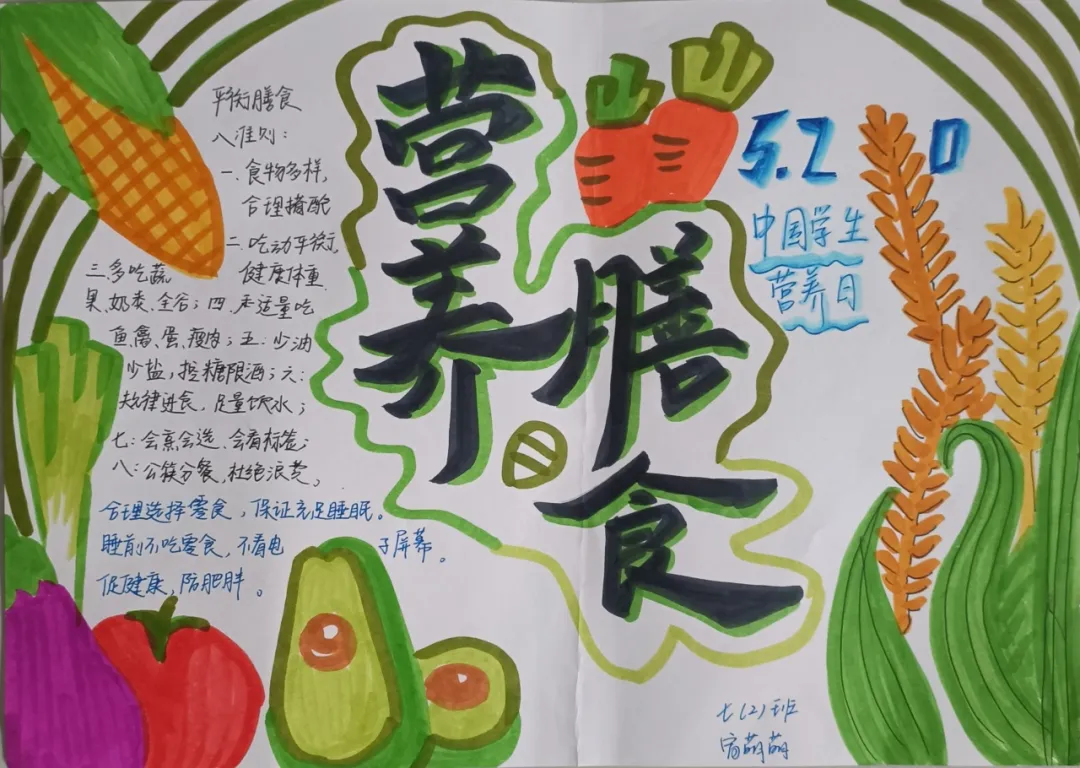 平衡膳食
八准则：
一.食物多样，
合理搭配
二.吃动平衡，
健康体重
三.多吃蔬
果、奶类、全谷；四.适量吃
鱼、禽、蛋、瘦肉；五：少油
少盐，控糖限酒；六：
规律进食，足量饮水；
七：会烹会选、会看标签；
八：公筷分餐，杜绝浪费，
合理选择零食，保证充足睡眠。
睡前不吃零食，不看电子屏幕。
促健康，防肥胖。
营养
膳食
5.20
中国学生
营养日
七（2）班
萌萌